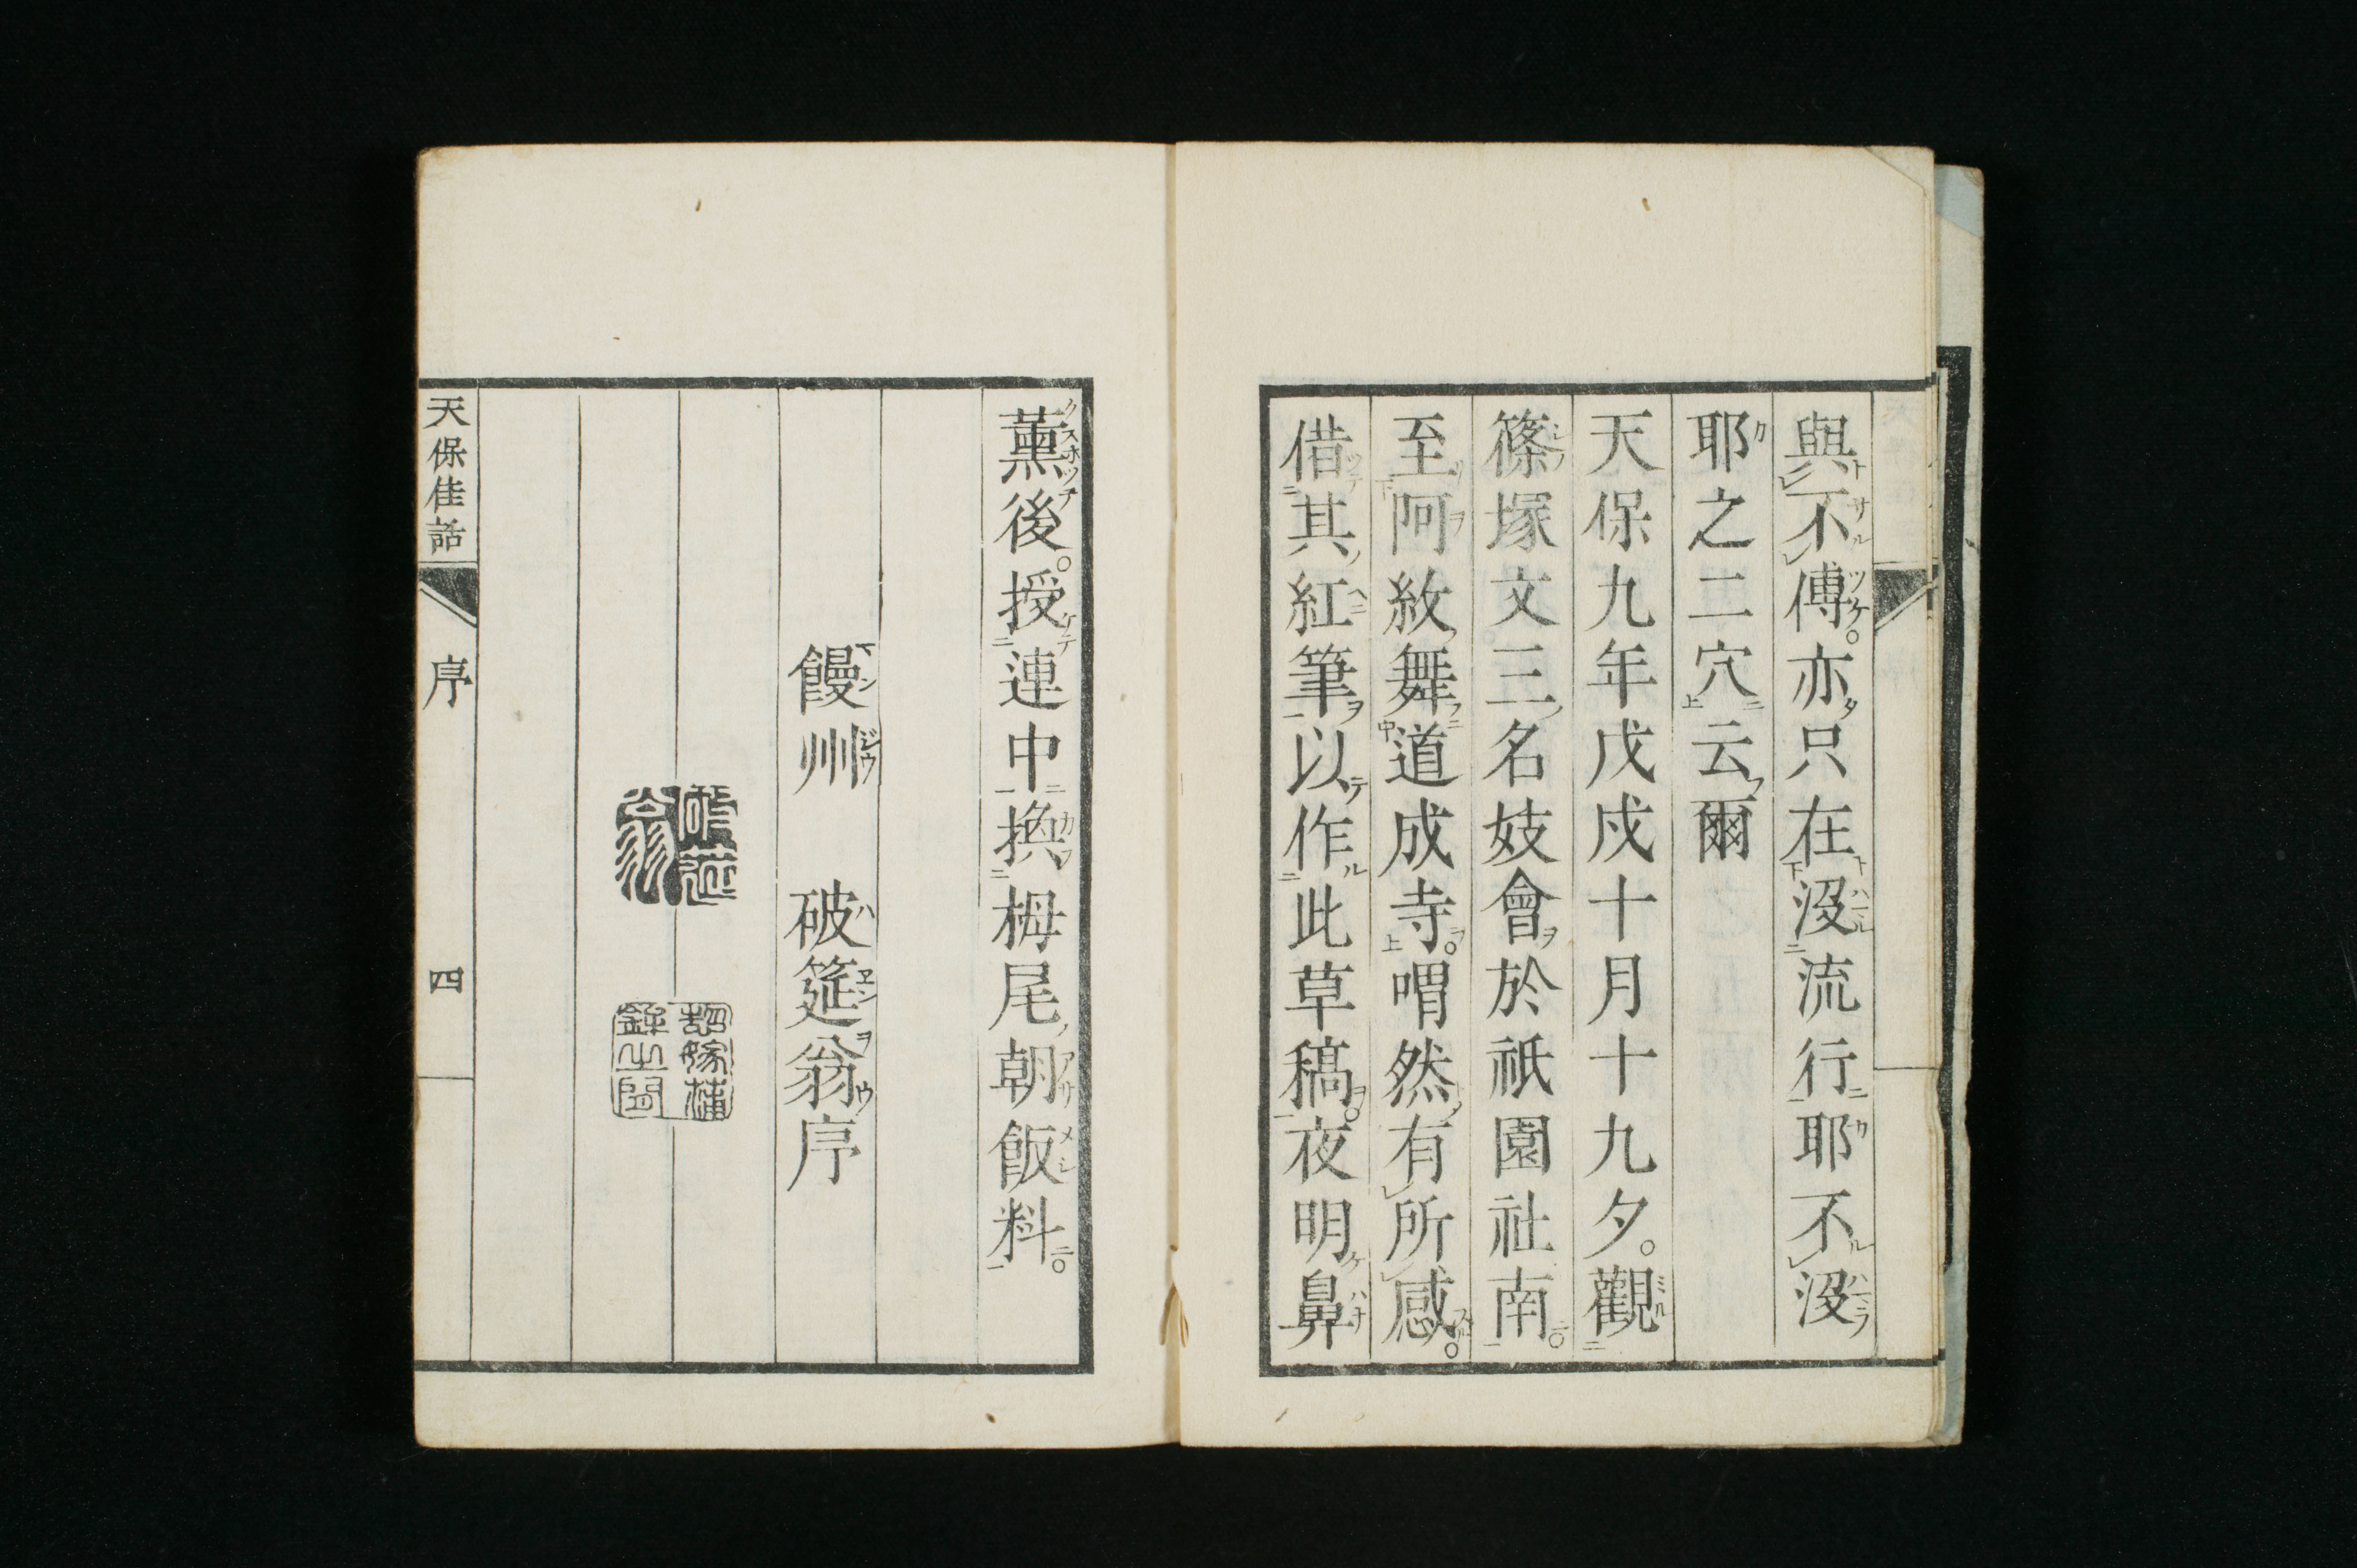 與不傅。亦只在沒流行耶不沒
耶之二穴云爾
天保九年戊戌十月十九夕。觀
篠塚文三名妓會於祇園社南。
至阿㪇舞道成寺。喟然有所感。
借其紅筆以作此草稿。夜明鼻
薫後。授連中換栂尾朝飯料。
饅州　破筵翁序
天保佳話
序
四